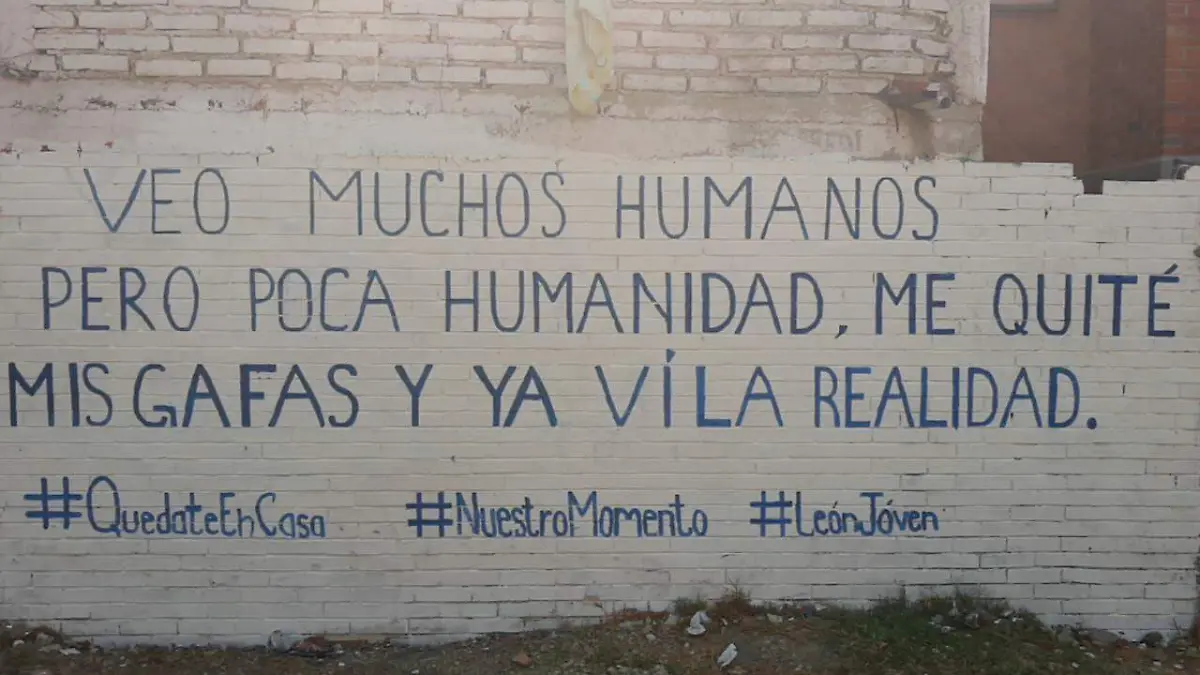 VEO MUCHOS HUMANOS
PERO POCA HUMANIDAD, ME QUITÉ
MIS GAFAS Y YA VÍ LA REALIDAD.
#QuedateEnCasa #NuestroMomento #LeónJóven